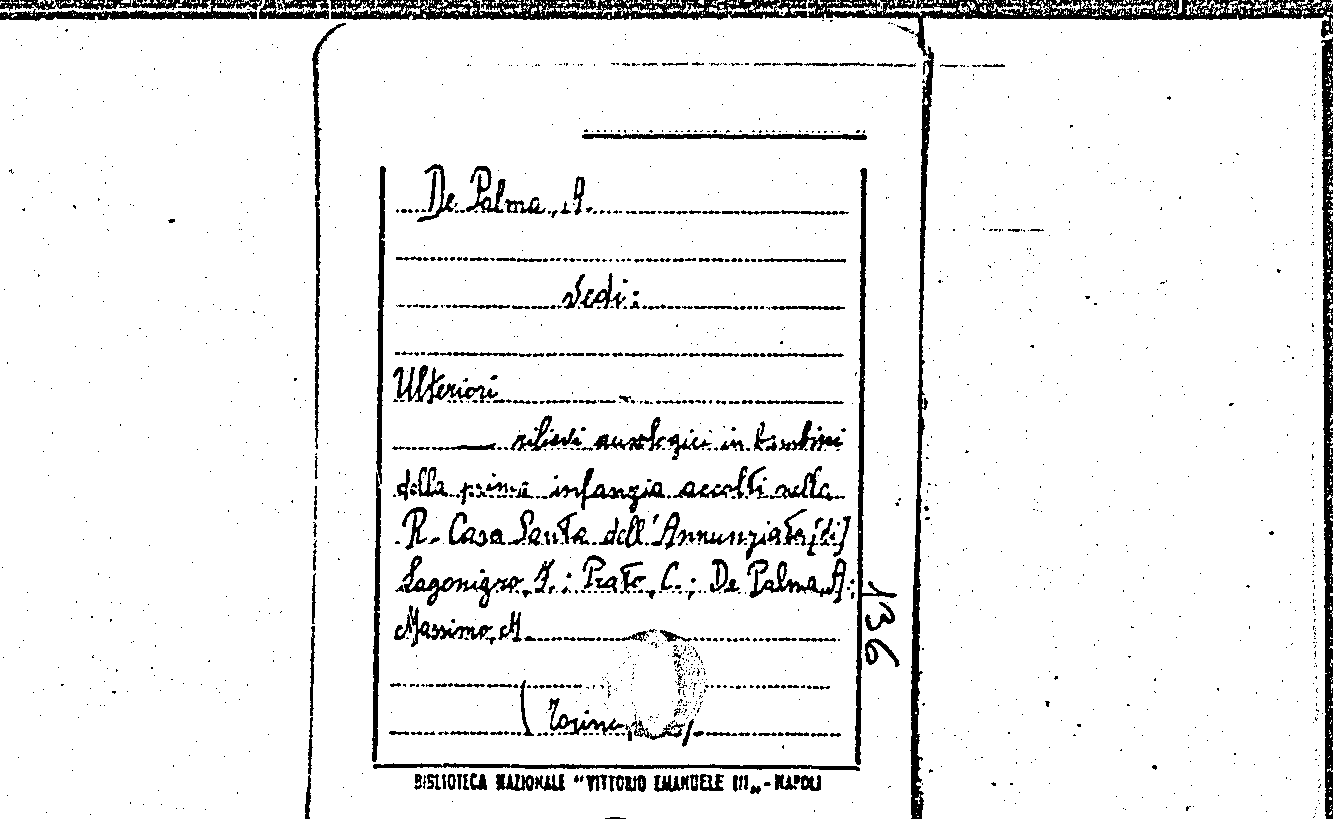 De Palma, A.
Vedi:
Ulteriori
rilievi auxologici in bambini
della prima infanzia accolti nella
R. Casa Santa dell'Annunziata [di]
Lagonigro, F.; Prato, C.; De Palma, A.;
Massimo, M.
(Torino,
136
BIBLIOTECA NAZIONALE "VITTORIO EMANUELE III„ - NAPOLI